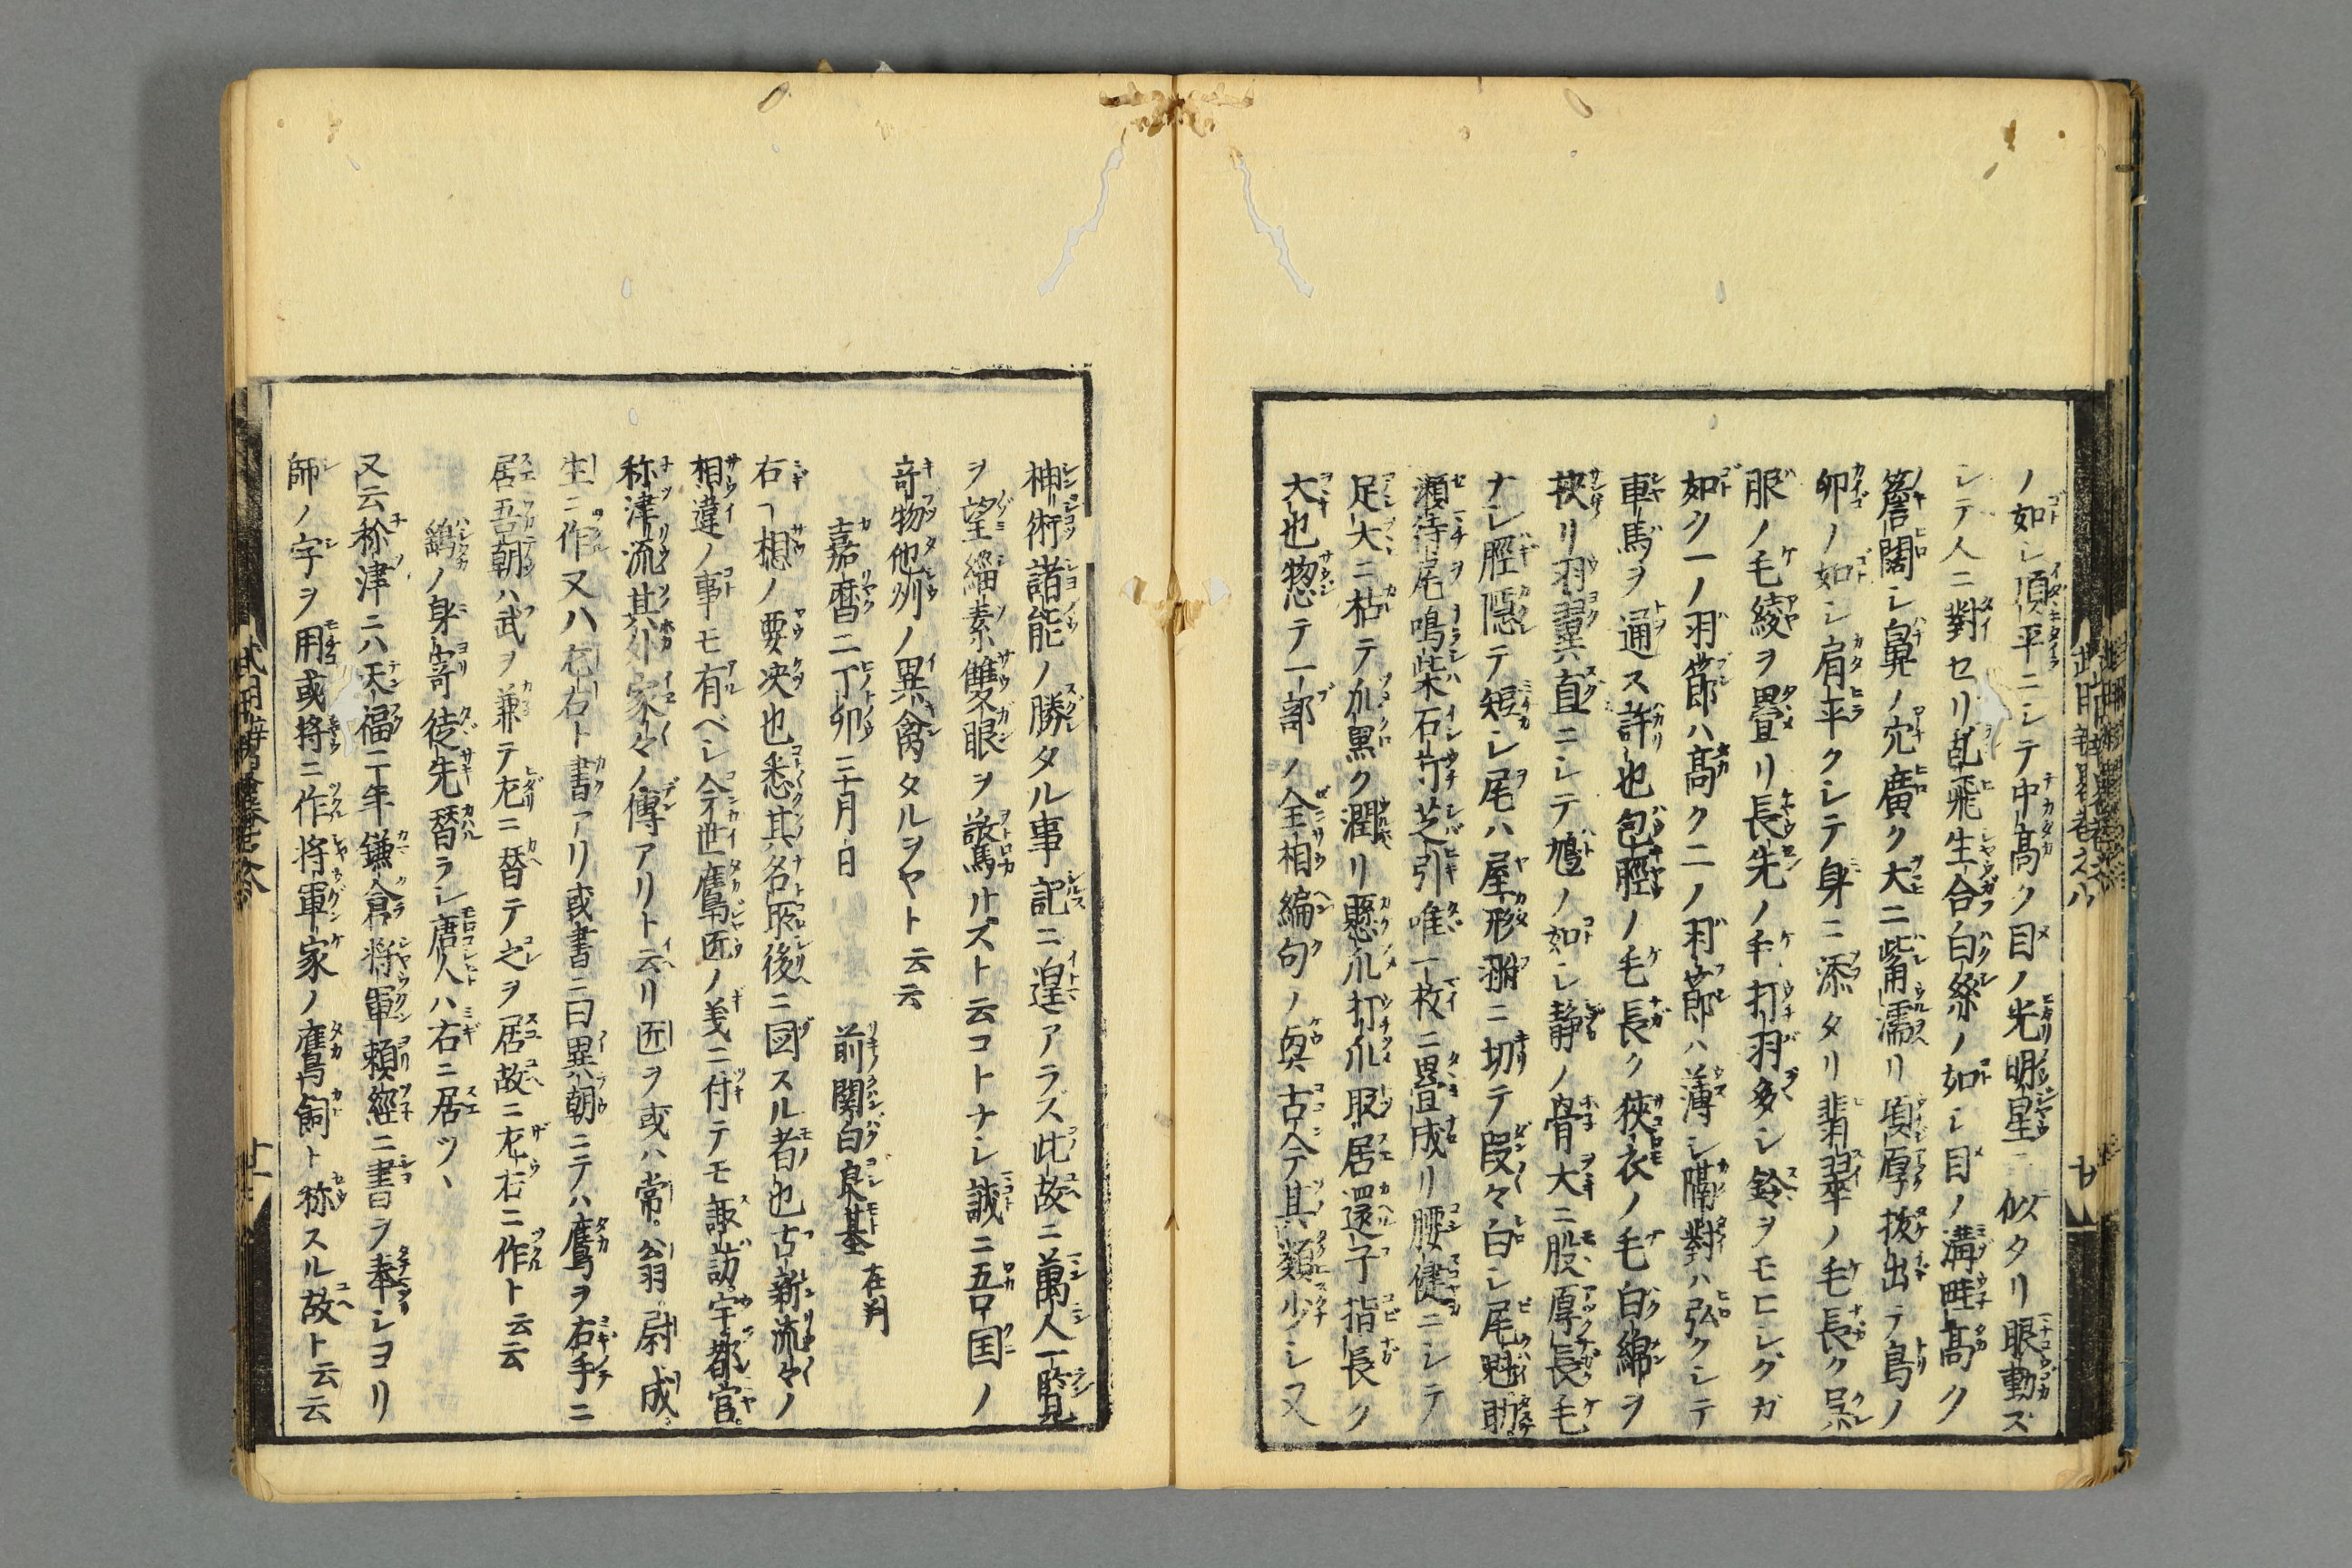 ノ如シ頂平ニシテ中高ク目ノ光明星ニ似タリ眼動ズ
シテ人ニ對セリ乱飛生合白絲ノ如シ目ノ溝畦高ク
簷闊シ鼻ノ穴廣ク大ニ觜濡リ項厚抜出テ鳥ノ
卯ノ如シ肩平クシテ身ニ添タリ翡翠ノ毛長ク呉
服ノ毛綾ヲ疊リ長先ノ毛打羽多シ鈴ヲモヒシグガ
如ク一ノ羽節ハ高ク二ノ羽節ハ薄シ隔對ハ弘クシテ
車馬ヲ通ス許也包脛ノ毛長ク狹衣ノ毛白綿ヲ
挾リ羽翼直ニシテ鳩ノ如シ静ノ骨大ニ股厚長毛
ナシ脛隠テ短シ尾ハ屋形翎ニ切テ段々白シ尾魁助
瀬待尾鳴柴石芝引唯一枚ニ畳成リ腰健ニシテ
足大ニ枯テ加黒ク潤リ懸爪打爪取居還子指長ク
大也惣テ一部ノ全相編句ノ奥古今其類少シ又
神術諸能ノ勝タル事記ニ遑アラズ此故ニ萬人一覧
ヲ望緇素雙眼ヲ驚サズト云コトナシ誠ニ吾国ノ
奇物他州ノ異禽タルヲヤト云云
嘉暦二丁卯三月日 前関白良基 在判
右ヿ相ノ要决也悉其名所後ニ図スル者也古新流々ノ
相違ノ事モ有ベシ今世鷹匠ノ義ニ付テモ諏訪宇都宮
称津流其外家々ノ傳アリト云リ匠ヲ或ハ常翁尉成
生ニ作又ハ左右ト書アリ或書ニ曰異朝ニテハ鷹ヲ右手ニ
居吾朝ハ武ヲ兼テ左ニ替テ之ヲ居故ニ左右ニ作ト云云
鷂ノ身寄徒先替ラシ唐人ハ右ニ居ツヽ
又云称津ニハ天福二年鎌倉将軍頼經ニ書ヲ奉シヨリ
師ノ字ヲ用或将ニ作将軍家ノ鷹飼ト称スル故ト云云